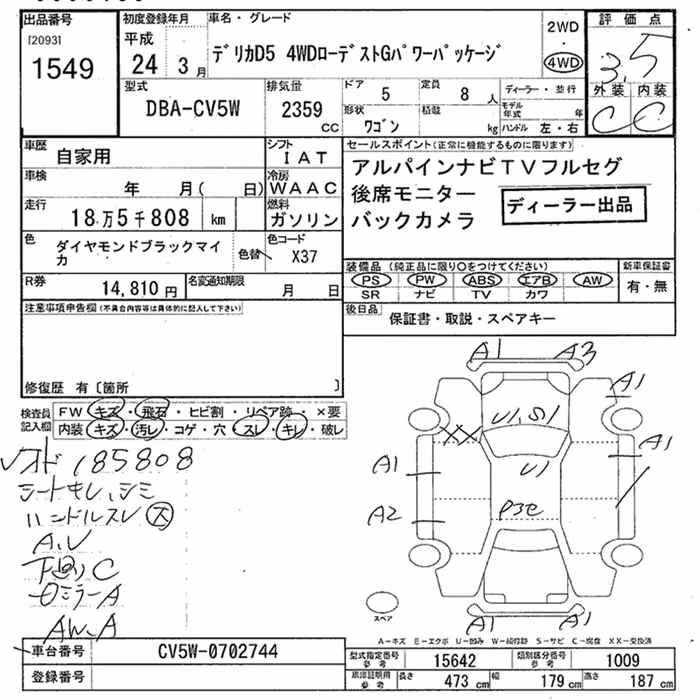 出品番号 初度登録年月 車名・グレード 評価点
[2093] 平成 2WD
1549 24 3月 デリカD5 4WDローデストGパワーパッケージ ・ 3.5
4WD
型式 排気量 ドア 5 定員 8 人 ディーラー・並行 外装 内装
DBA-CV5W 2359 cc 形状 ワゴン 積載 kg モデル年式 年 C C
ハンドル 左・右
車歴 自家用 シフト IAT セールスポイント(正常に機能するものに限ります)
車検 年 月( 日) 冷房 WAAC アルパインナビTVフルセグ
走行 18万5千808 km 燃料 ガソリン 後席モニター
バックカメラ ディーラー出品
色 ダイヤモンドブラックマイカ 色替 色コード X37
装備品(純正品に限り○をつけてください) 新車保証書
R券 14,810円 名変通知期限 月 日 PS PW ABS エアB AW 有・無
SR ナビ TV カワ
注意事項申告欄(不具合内容等は具体的に記入して下さい) 後日品 保証書・取説・スペアキー
修復歴 有〔箇所 〕
検査員記入欄 FW キズ・飛石・ヒビ割・リペア跡・×要
内装 キズ・汚レ・コゲ・穴・スレ・キレ・破レ
A1 A3
A1
U1,S1
XX
A1 U1 A1
A2
A1 A1
スペア
185808
シートキレ,シミ
ハンドルスレ
下回りC
ミラーA
AW-A
A-キズ E-エクボ U-凹み W-補修跡 S-サビ C-腐食 XX-交換済
車台番号 CV5W-0702744 型式指定番号 参考 15642 類別区分番号 参考 1009
登録番号 車庫証明用 参考 長さ 473 cm 幅 179 cm 高さ 187 cm